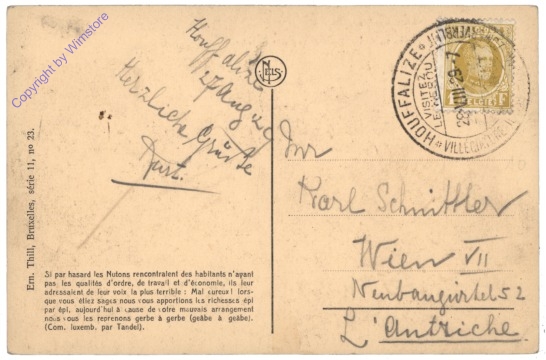 Copyright by Wimstore
Ern. Thill, Bruxelles, série 11, no 23.
Houffalize
27 August
Herzliche Grüsse
NELS
Si par hasard les Nutons rencontraient des habitants n'ayant
pas les qualités d'ordre, de travail et d'économie, ils leur
adressaient de leur voix la plus terrible : Mal cureux ! lors-
que vous étiez sages nous vous apportions les richesses épi
par épi, aujourd'hui à cause de votre mauvais arrangement
nous vous les reprenons gerbe à gerbe (geâbe à geâbe).
(Com. luxemb. par Tandel).
HOUFFALIZE
VISITEZ
1F
BELGIË
Karl Schnittler
Wien VII
Neubaugürtel 52
L'Autriche